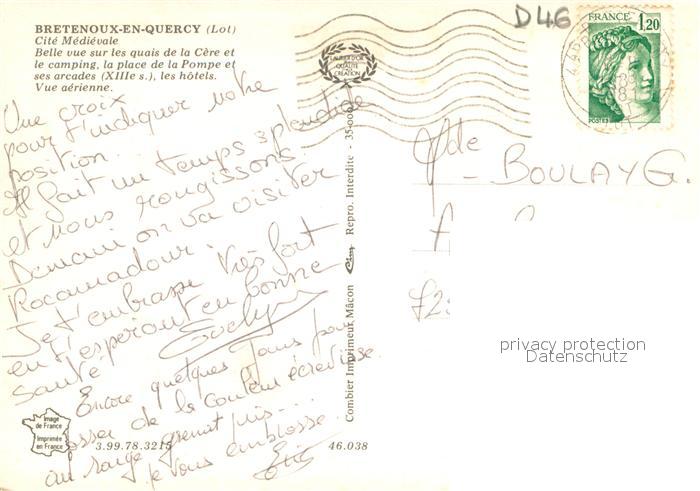 BRETENOUX-EN-QUERCY (Lot)
Cité Médiévale
Belle vue sur les quais de la Cère et
le camping, la place de la Pompe et
ses arcades (XIIIe s.), les hôtels.
Vue aérienne.
LAURIER D'OR
QUALITÉ
CRÉATION
D46
FRANCE 1,20
Une croix
pour t'indiquer notre
position.
Il fait un temps splendide
et nous rougissons
Demain on va visiter
Rocamadour.
Je t'embrasse très fort
en t'espérant en bonne
santé
Evelyne
Encore quelques jours pour
passer de la couleur écrevisse
au rouge grenat puis...
Je vous embrasse.
Eric
BOULAY G.
privacy protection
Datenschutz
Combier Imprimeur Mâcon Repro. Interdite - 35000
Image
de France
Imprimée
en France
3.99.78.3215
46.038